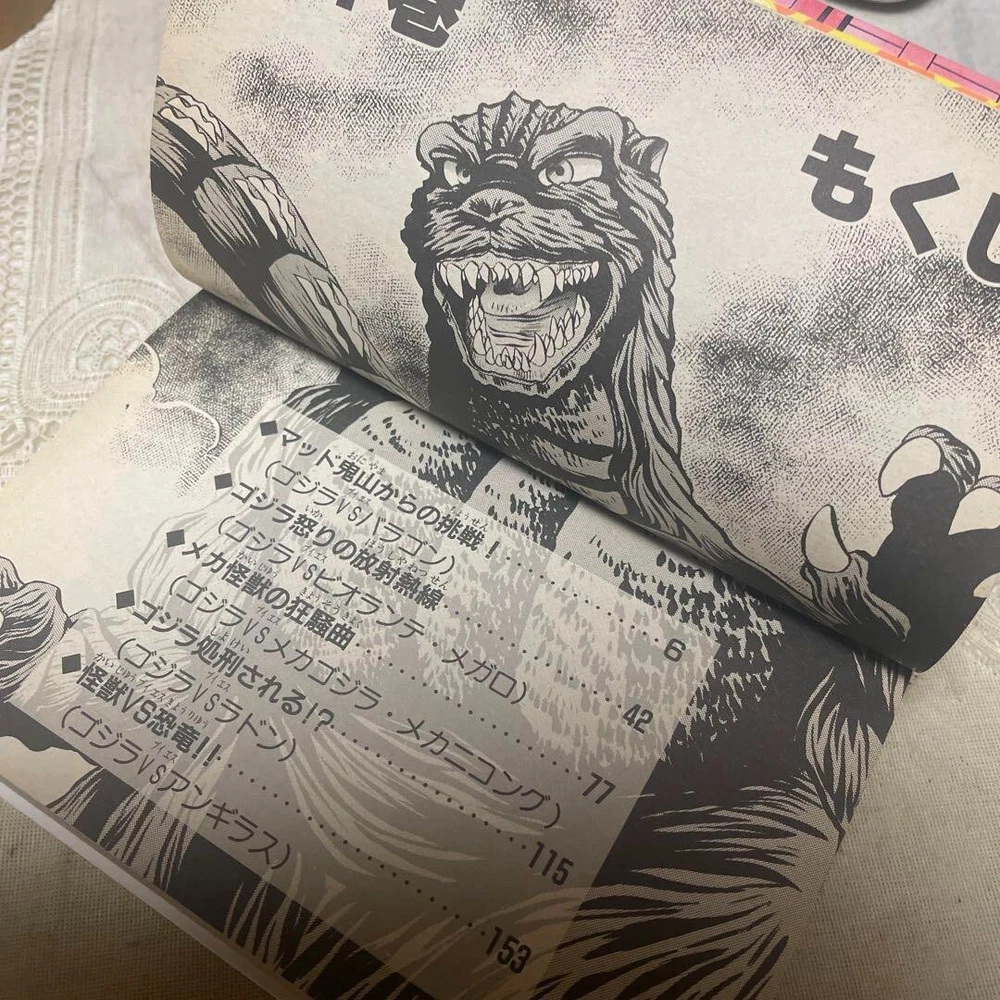 巻
もくじ
◆マッド鬼山からの挑戦!……6
(ゴジラVSバラゴン)
◆ゴジラ怒りの放射熱線……42
(ゴジラVSビオランテ・メガロ)
◆メカ怪獣の狂騒曲……77
(ゴジラVSメカゴジラ・メカニコング)
◆ゴジラ処刑される!?……115
(ゴジラVSラドン)
◆怪獣VS恐竜!!……153
(ゴジラVSアンギラス)